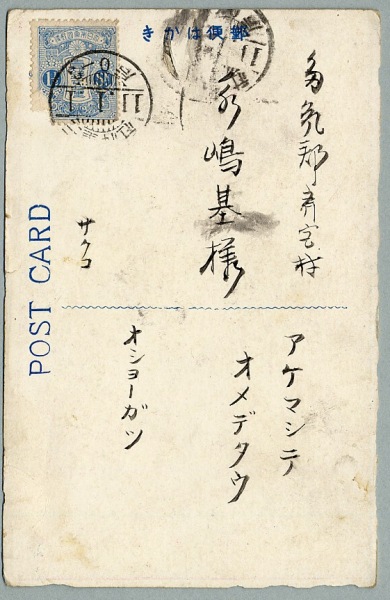 きかは便郵
多気郡斉宮村
永嶋基様
サクコ
アケマシテ
オメデタウ
オショーガツ
POST CARD
11.1.1